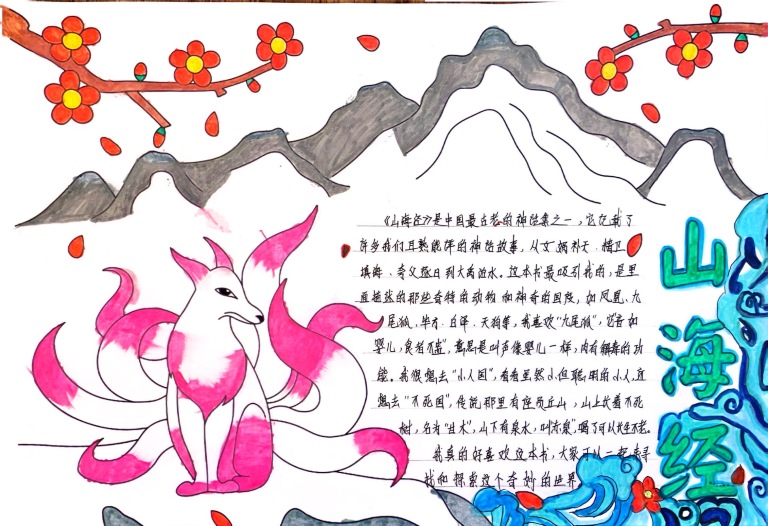 《山海经》是中国最古老的神话集之一,它记载了
许多我们耳熟能详的神话故事,从女娲补天、精卫
填海、夸父逐日到大禹治水。这本书最吸引我的,是里
面描述的那些奇特的动物和神奇的国度,如凤凰、九
尾狐、毕方、白泽、天狗等,我喜欢“九尾狐”,它音如
婴儿,食者不蛊”,意思是叫声像婴儿一样,肉有解毒的功
能。我很想去“小人国”,看看虽然小但聪明的小人,还
想去“不死国”,传说那里有座员丘山,山上长着不死
树,名为“甘木”,山下有泉水,叫“赤泉”,喝了可以长生不老。
我真的好喜欢这本书,大家可以一起来寻
找和探索这个奇妙的世界。
山海经